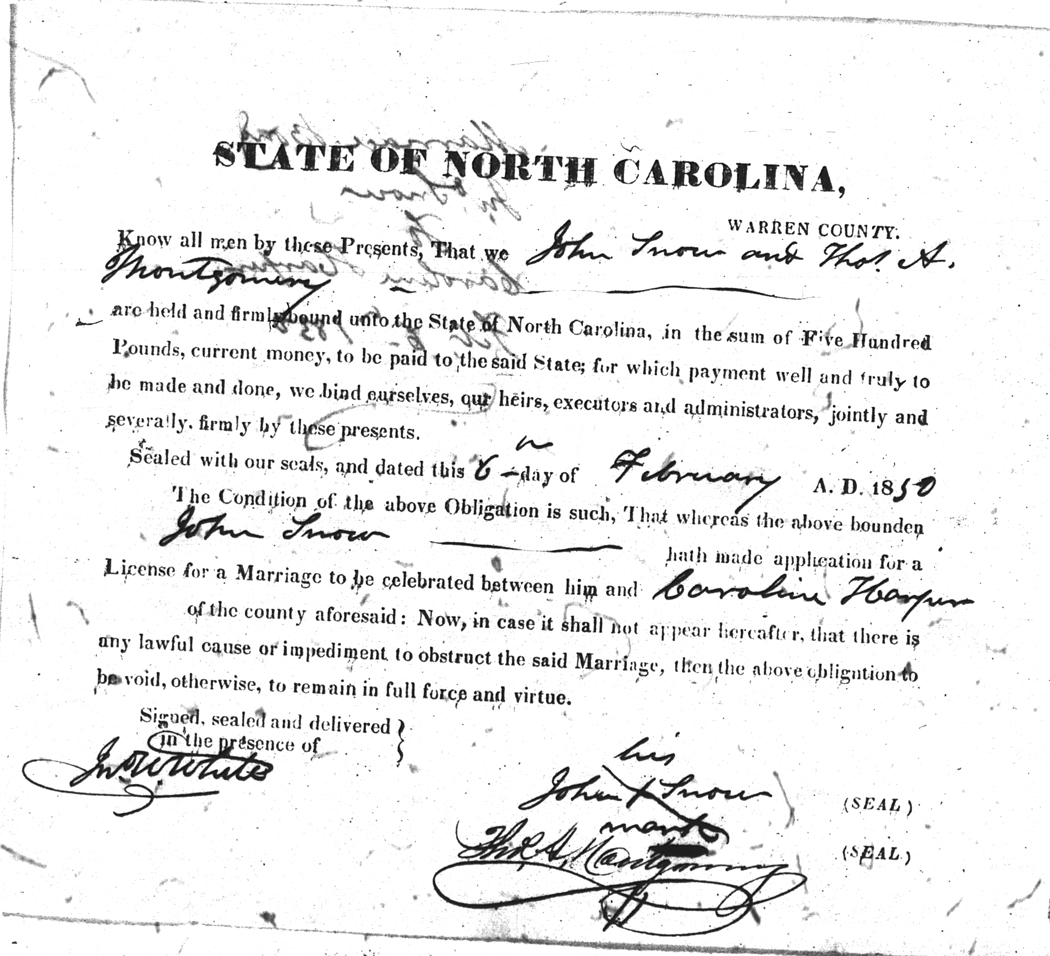 STATE OF NORTH CAROLINA,
WARREN COUNTY.
Know all men by these Presents, That we John Snow and Thos. A.
Montgomery
are held and firmly bound unto the State of North Carolina, in the sum of Five Hundred
Pounds, current money, to be paid to the said State; for which payment well and truly to
be made and done, we bind ourselves, our heirs, executors and administrators, jointly and
severally, firmly by these presents.
Sealed with our seals, and dated this 6 day of February A. D. 1850
The Condition of the above Obligation is such, That whereas the above bounden
John Snow hath made application for a
License for a Marriage to be celebrated between him and Caroline Harper
of the county aforesaid: Now, in case it shall not appear hereafter, that there is
any lawful cause or impediment to obstruct the said Marriage, then the above obligation to
be void, otherwise, to remain in full force and virtue.
Signed, sealed and delivered }
in the presence of
Jno. W. White
his
John X Snow (SEAL)
mark
Thos. A. Montgomery (SEAL)